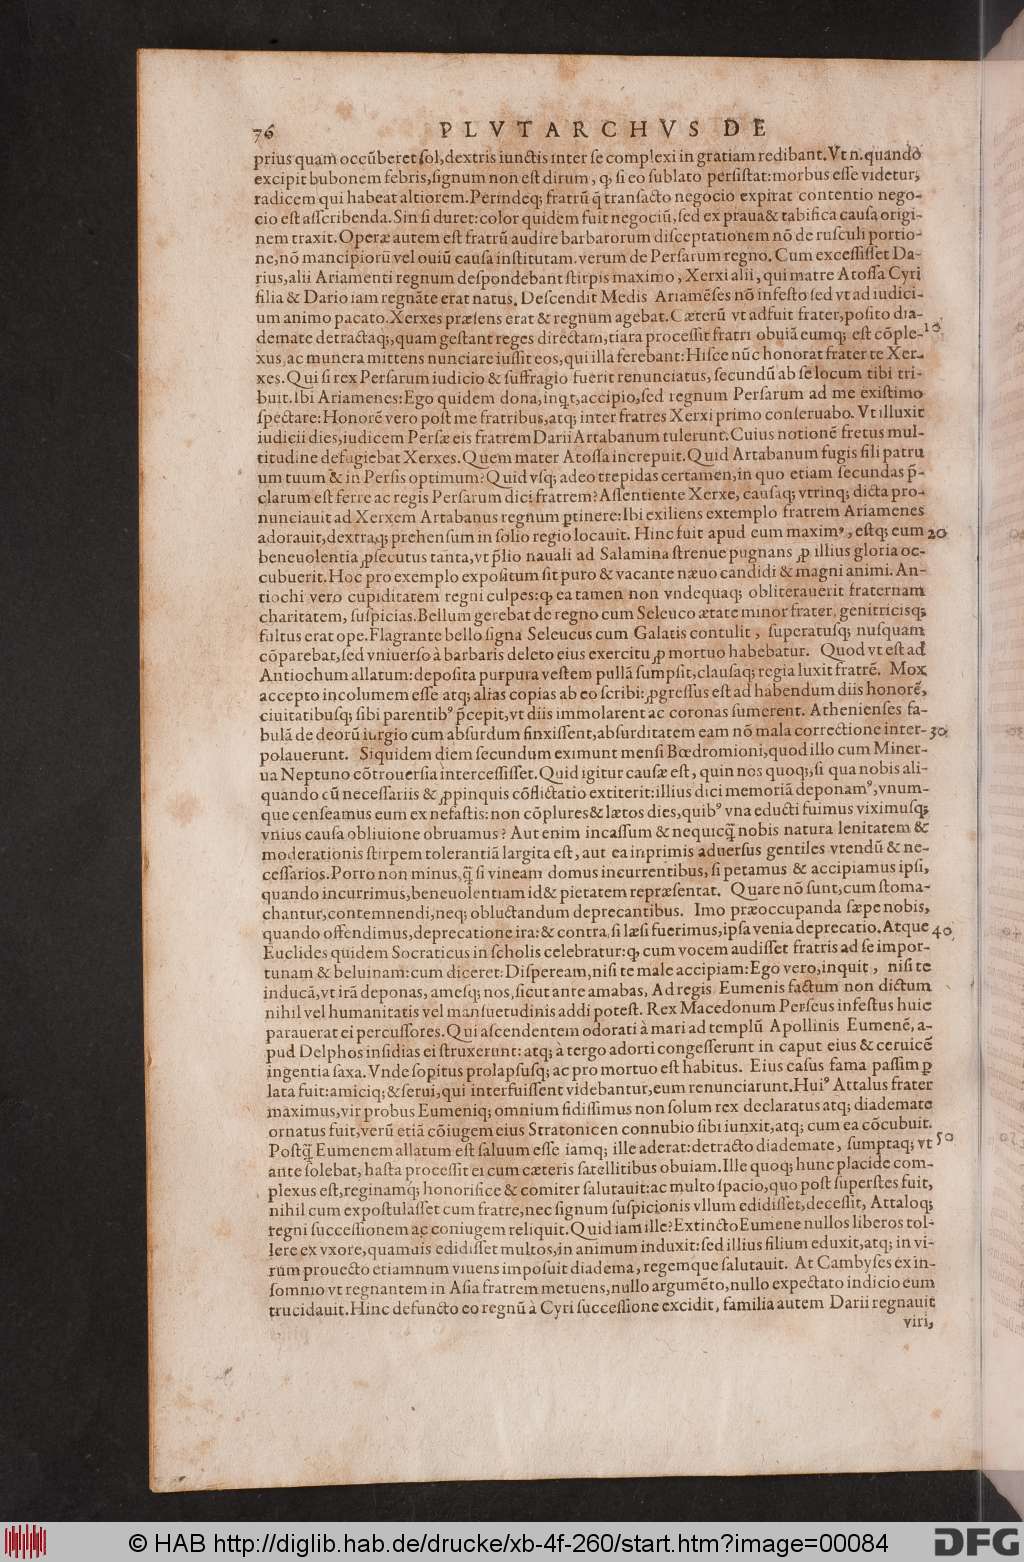 76 PLVTARCHVS DE
prius quam occũberet sol,dextris iunctis inter se complexi in gratiam redibant.Vt n.quando
excipit bubonem febris,signum non est dirum, ꝙ si eo sublato persistat:morbus esse videtur,
radicem qui habeat altiorem.Perindeq; fratrũ q̃ transacto negocio expirat contentio nego-
cio est asscribenda.Sin si duret:color quidem fuit negociũ,sed ex praua& tabifica causa origi-
nem traxit.Operæ autem est fratrũ audire barbarorum disceptationem nõ de rusculi portio-
ne,nõ mancipiorũ vel ouiũ causa institutam.verum de Persarum regno.Cum excessisset Da-
rius,alii Ariamenti regnum despondebant stirpis maximo, Xerxi alii, qui matre Atossa Cyri
filia & Dario iam regnãte erat natus. Descendit Medis Ariamẽses nõ infesto sed vt ad iudici-
um animo pacato.Xerxes præsens erat & regnum agebat.Cæterũ vt adfuit frater,posito dia-
demate detractaq;,quam gestant reges directam,tiara processit fratri obuiã eumq; est cõple-10
xus,ac munera mittens nunciare iussit eos,qui illa ferebant:Hisce nũc honorat frater te Xer-
xes.Qui si rex Persarum iudicio & suffragio fuerit renunciatus, secundũ ab se locum tibi tri-
buit.Ibi Ariamenes:Ego quidem dona,inq̃t,accipio,sed regnum Persarum ad me existimo
spectare:Honorẽ vero post me fratribus,atq; inter fratres Xerxi primo conseruabo. Vt illuxit
iudicii dies,iudicem Persæ eis fratrem Darii Artabanum tulerunt.Cuius notionẽ fretus mul-
titudine defugiebat Xerxes.Quem mater Atossa increpuit.Quid Artabanum fugis fili patru
um tuum & in Persis optimum?Quid vsq; adeo trepidas certamen,in quo etiam secundas p̃-
clarum est ferre ac regis Persarum dici fratrem?Assentiente Xerxe, causaq; vtrinq; dicta pro-
nunciauit ad Xerxem Artabanus regnum ꝑtinere:Ibi exiliens extemplo fratrem Ariamenes
adorauit,dextraq; prehensum in solio regio locauit. Hinc fuit apud eum maximꝰ, estq; eum 20
beneuolentia ꝓsecutus tanta,vt p̃lio nauali ad Salamina strenue pugnans ꝓ illius gloria oc-
cubuerit.Hoc pro exemplo expositum sit puro & vacante næuo candidi & magni animi. An-
tiochi vero cupiditatem regni culpes:ꝙ ea tamen non vndequaq; obliterauerit fraternam
charitatem, suspicias.Bellum gerebat de regno cum Seleuco ætate minor frater, genitricisq;
fultus erat ope.Flagrante bello signa Seleucus cum Galatis contulit, superatusq; nusquam
cõparebat,sed vniuerso à barbaris deleto eius exercitu ꝓ mortuo habebatur. Quod vt est ad
Antiochum allatum:deposita purpura vestem pullã sumpsit,clausaq; regia luxit fratrẽ. Mox
accepto incolumem esse atq; alias copias ab eo scribi:ꝓgressus est ad habendum diis honorẽ,
ciuitatibusq; sibi parentibꝰ p̃cepit,vt diis immolarent ac coronas sumerent. Athenienses fa-
bulã de deorũ iurgio cum absurdum finxissent,absurditatem eam nõ mala correctione inter-30
polauerunt. Siquidem diem secundum eximunt mensi Bœdromioni,quod illo cum Miner-
ua Neptuno cõtrouersia intercessisset.Quid igitur causæ est, quin nos quoq;,si qua nobis ali-
quando cũ necessariis & ꝓpinquis cõflictatio extiterit:illius dici memoriã deponamꝰ,vnum-
que censeamus eum ex nefastis:non cõplures& lætos dies,quibꝰ vna educti fuimus viximusq;
vnius causa obliuione obruamus? Aut enim incassum & nequicq̃ nobis natura lenitatem &
moderationis stirpem tolerantiã largita est, aut ea inprimis aduersus gentiles vtendũ & ne-
cessarios.Porro non minus,q̃ si vineam domus incurrentibus, si petamus & accipiamus ipsi,
quando incurrimus,beneuolentiam id& pietatem repræsentat. Quare nõ sunt,cum stoma-
chantur,contemnendi,neq; obluctandum deprecantibus. Imo præoccupanda sæpe nobis,
quando offendimus,deprecatione ira:& contra, si læsi fuerimus,ipsa venia deprecatio.Atque 40
Euclides quidem Socraticus in scholis celebratur:ꝙ cum vocem audisset fratris ad se impor-
tunam & beluinam:cum diceret:Dispeream,nisi te male accipiam:Ego vero,inquit, nisi te
inducã,vt irã deponas, amesq; nos,sicut ante amabas, Ad regis Eumenis factum non dictum
nihil vel humanitatis vel mansuetudinis addi potest. Rex Macedonum Perseus infestus huic
parauerat ei percussores.Qui ascendentem odorati à mari ad templũ Apollinis Eumenẽ, a-
pud Delphos insidias ei struxerunt: atq; à tergo adorti congesserunt in caput eius & ceruicẽ
ingentia saxa.Vnde sopitus prolapsusq; ac pro mortuo est habitus. Eius casus fama passim ꝑ
lata fuit:amiciq; & serui,qui interfuissent videbantur,eum renunciarunt.Huiꝰ Attalus frater
maximus,vir probus Eumeniq; omnium fidissimus non solum rex declaratus atq; diademate
ornatus fuit,verũ etiã cõiugem eius Stratonicen connubio sibi iunxit,atq; cum ea cõcubuit.
Postq̃ Eumenem allatum est saluum esse iamq; ille aderat:detracto diademate, sumptaq; vt 50
ante solebat, hasta processit ei cum cæteris satellitibus obuiam.Ille quoq; hunc placide com-
plexus est,reginamq; honorifice & comiter salutauit:ac multo spacio,quo post superstes fuit,
nihil cum expostulasset cum fratre,nec signum suspicionis vllum edidisset,decessit, Attaloq;
regni successionem ac coniugem reliquit.Quid iam ille?Extincto Eumene nullos liberos tol-
lere ex vxore,quamuis edidisset multos,in animum induxit:sed illius filium eduxit,atq; in vi-
rum prouecto etiamnum viuens imposuit diadema, regemque salutauit. At Cambyses ex in-
somnio vt regnantem in Asia fratrem metuens,nullo argumẽto,nullo expectato indicio eum
trucidauit.Hinc defuncto eo regnũ à Cyri successione excidit, familia autem Darii regnauit
viri,
© HAB http://diglib.hab.de/drucke/xb-4f-260/start.htm?image=00084
DFG